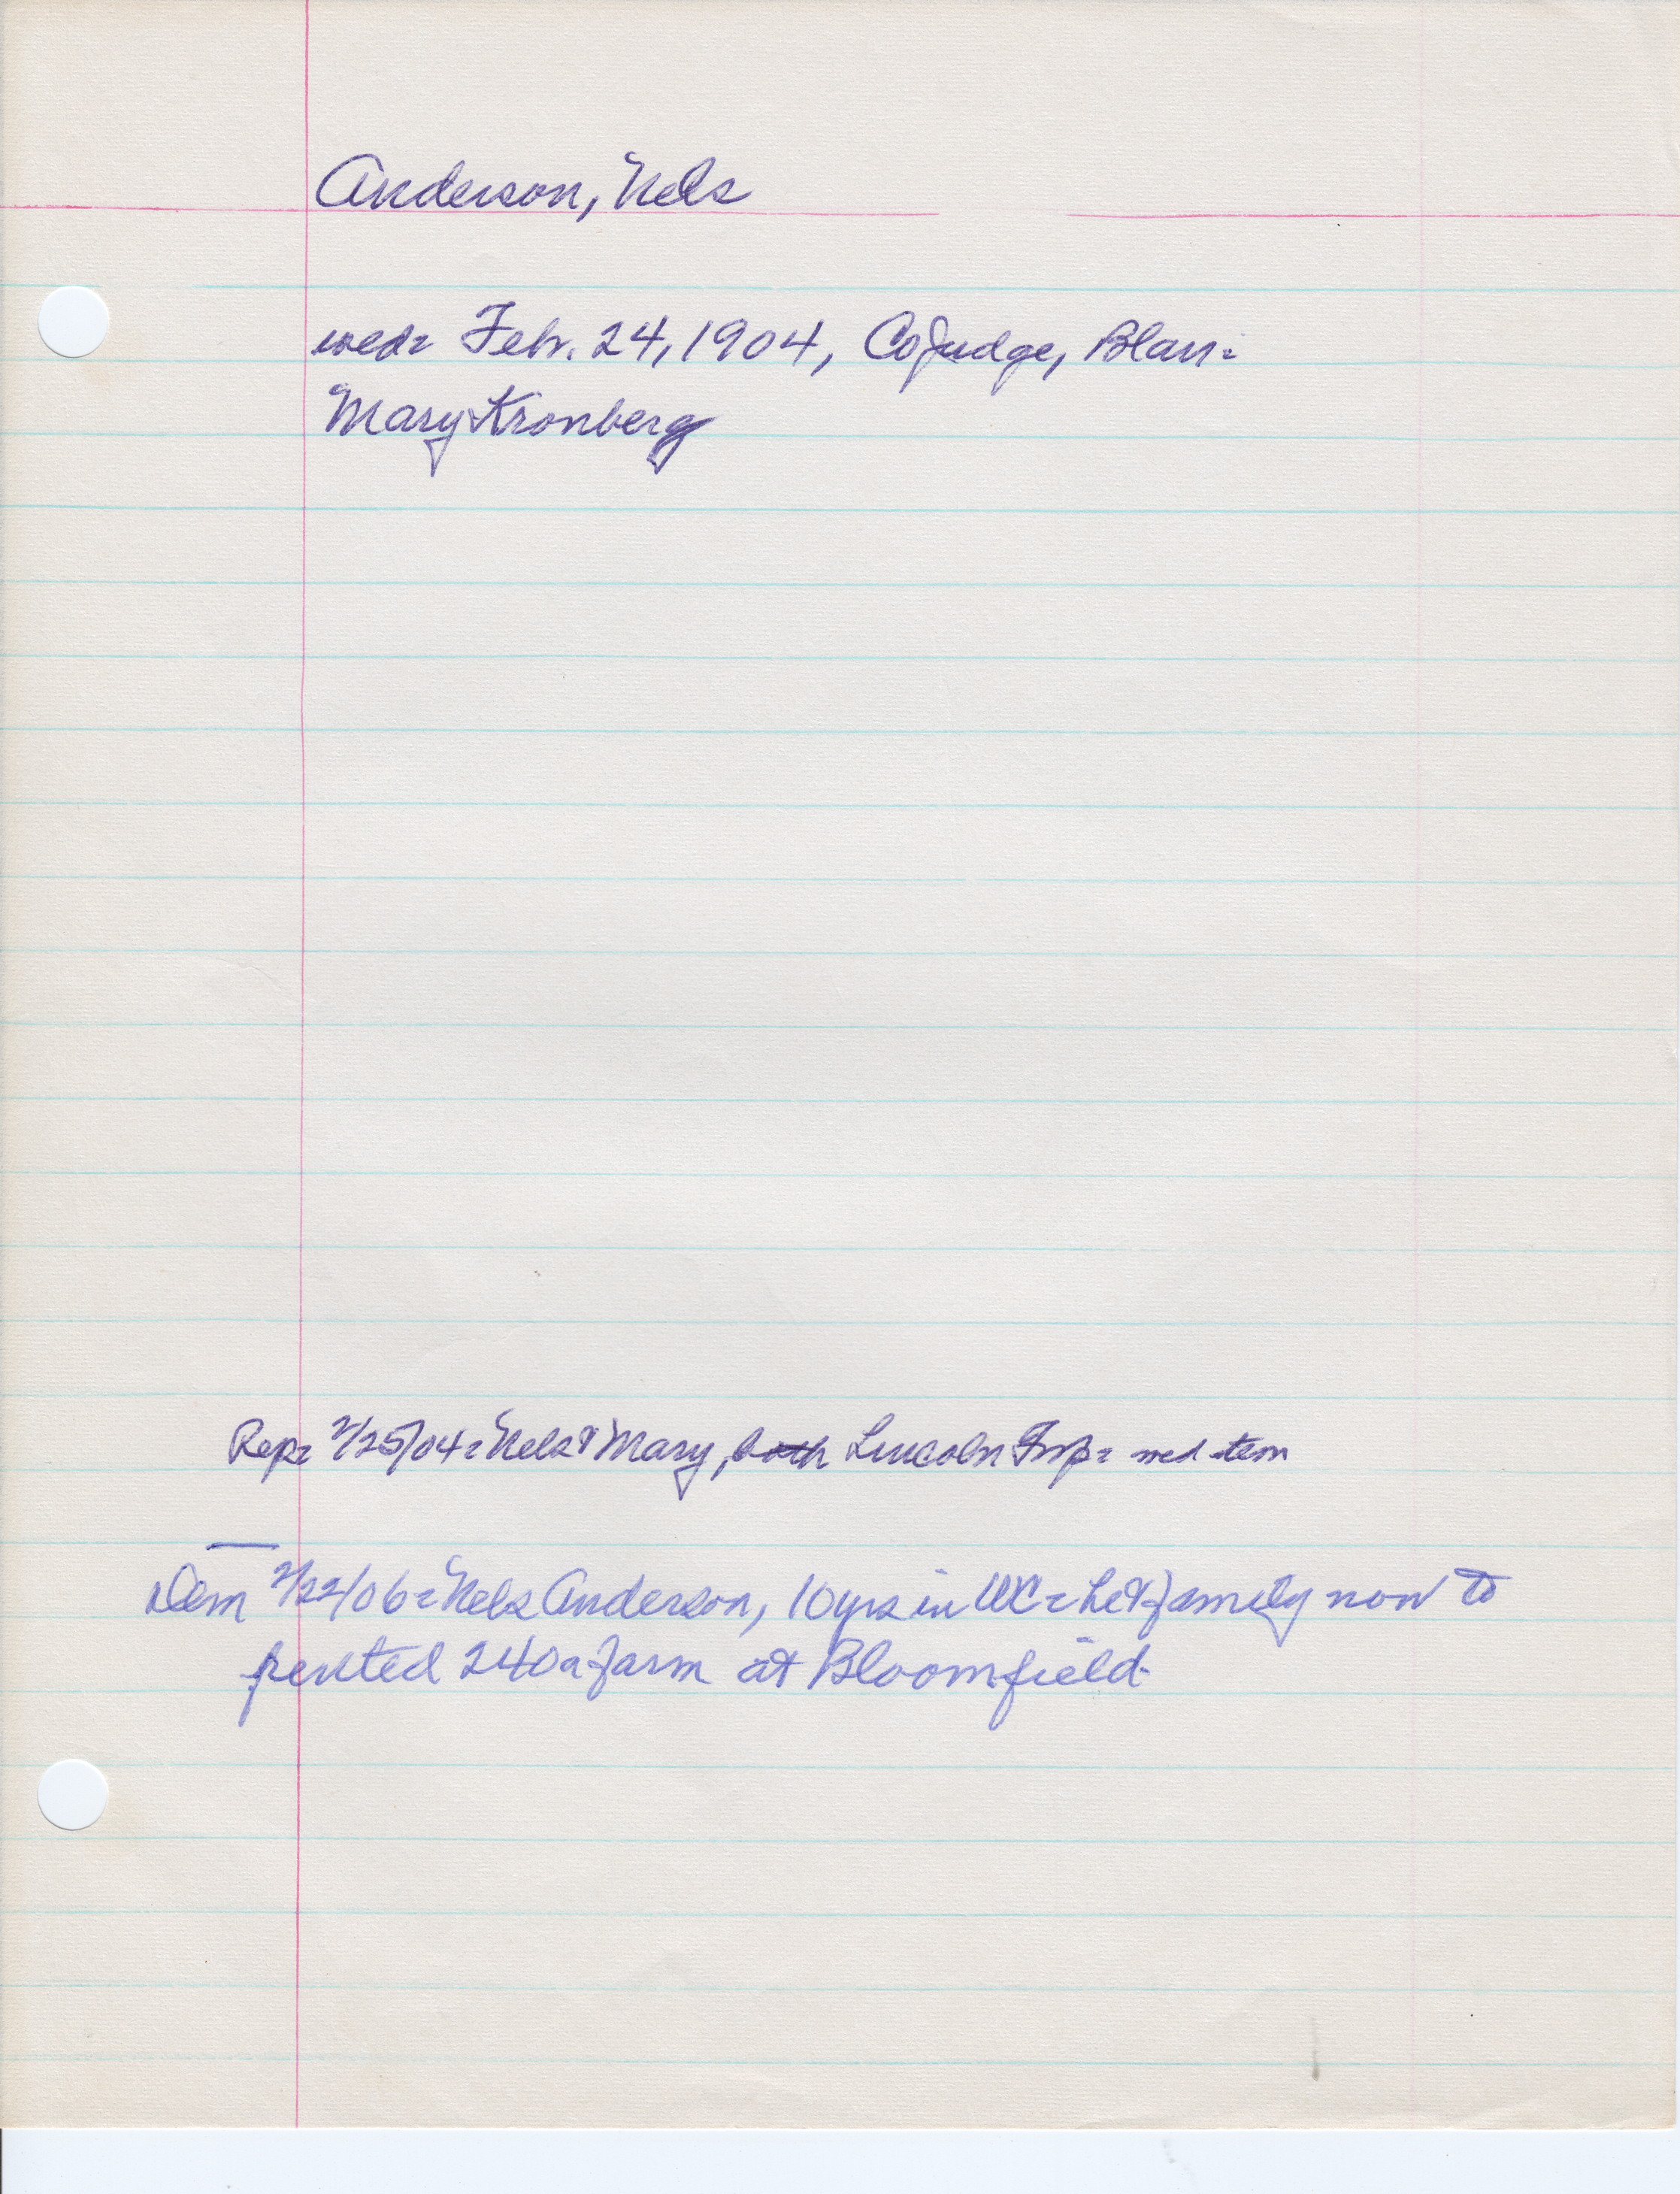 Anderson, Nels
wed= Feb. 24, 1904, CoJudge, Blair=
Mary Kronberg
Rep= 2/25/04= Nels & Mary, both Lincoln Twp= wed item
Dem 2/22/06= Nels Anderson, 10 yrs in WC= he & family now to
rented 240a farm at Bloomfield